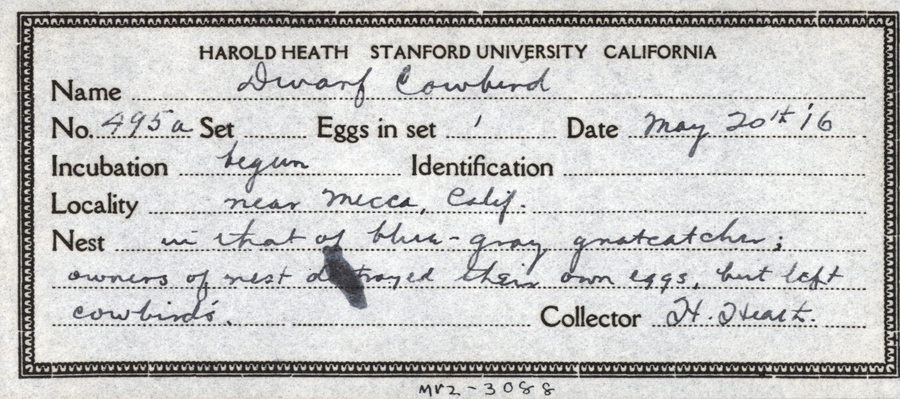 HAROLD HEATH STANFORD UNIVERSITY CALIFORNIA
Name Dwarf Cowbird
No. 495a Set Eggs in set 1 Date May 20th '16
Incubation begun Identification
Locality near Mecca, Calif.
Nest in that of blue-gray gnatcatcher;
owners of nest destroyed their own eggs, but left
cowbird's. Collector H. Heath.
MVZ-3088